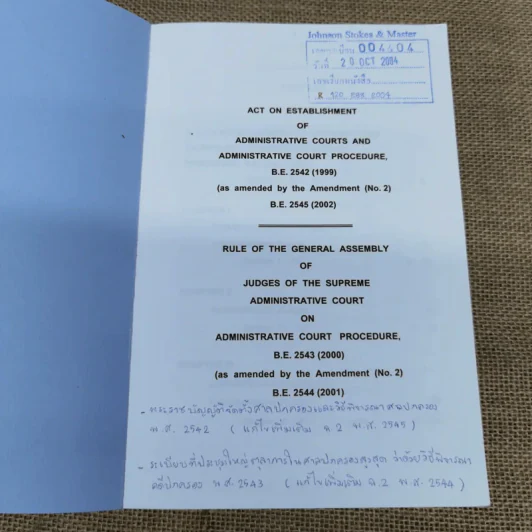 Johnson Stokes & Master
เลขทะเบียน 004404
วันที่ 20 OCT 2004
เลขเรียกหนังสือ
ACT ON ESTABLISHMENT
OF
ADMINISTRATIVE COURTS AND
ADMINISTRATIVE COURT PROCEDURE,
B.E. 2542 (1999)
(as amended by the Amendment (No. 2)
B.E. 2545 (2002)
RULE OF THE GENERAL ASSEMBLY
OF
JUDGES OF THE SUPREME
ADMINISTRATIVE COURT
ON
ADMINISTRATIVE COURT PROCEDURE,
B.E. 2543 (2000)
(as amended by the Amendment (No. 2)
B.E. 2544 (2001)
- พระราชบัญญัติจัดตั้งศาลปกครองและวิธีพิจารณาศาลปกครอง
พ.ศ. 2542 ( แก้ไขเพิ่มเติม ฉ.2 พ.ศ. 2545 )
- ระเบียบที่ประชุมใหญ่ตุลาการในศาลปกครองสูงสุด ว่าด้วยวิธีพิจารณา
คดีปกครอง พ.ศ. 2543 ( แก้ไขเพิ่มเติม ฉ.2 พ.ศ. 2544 )